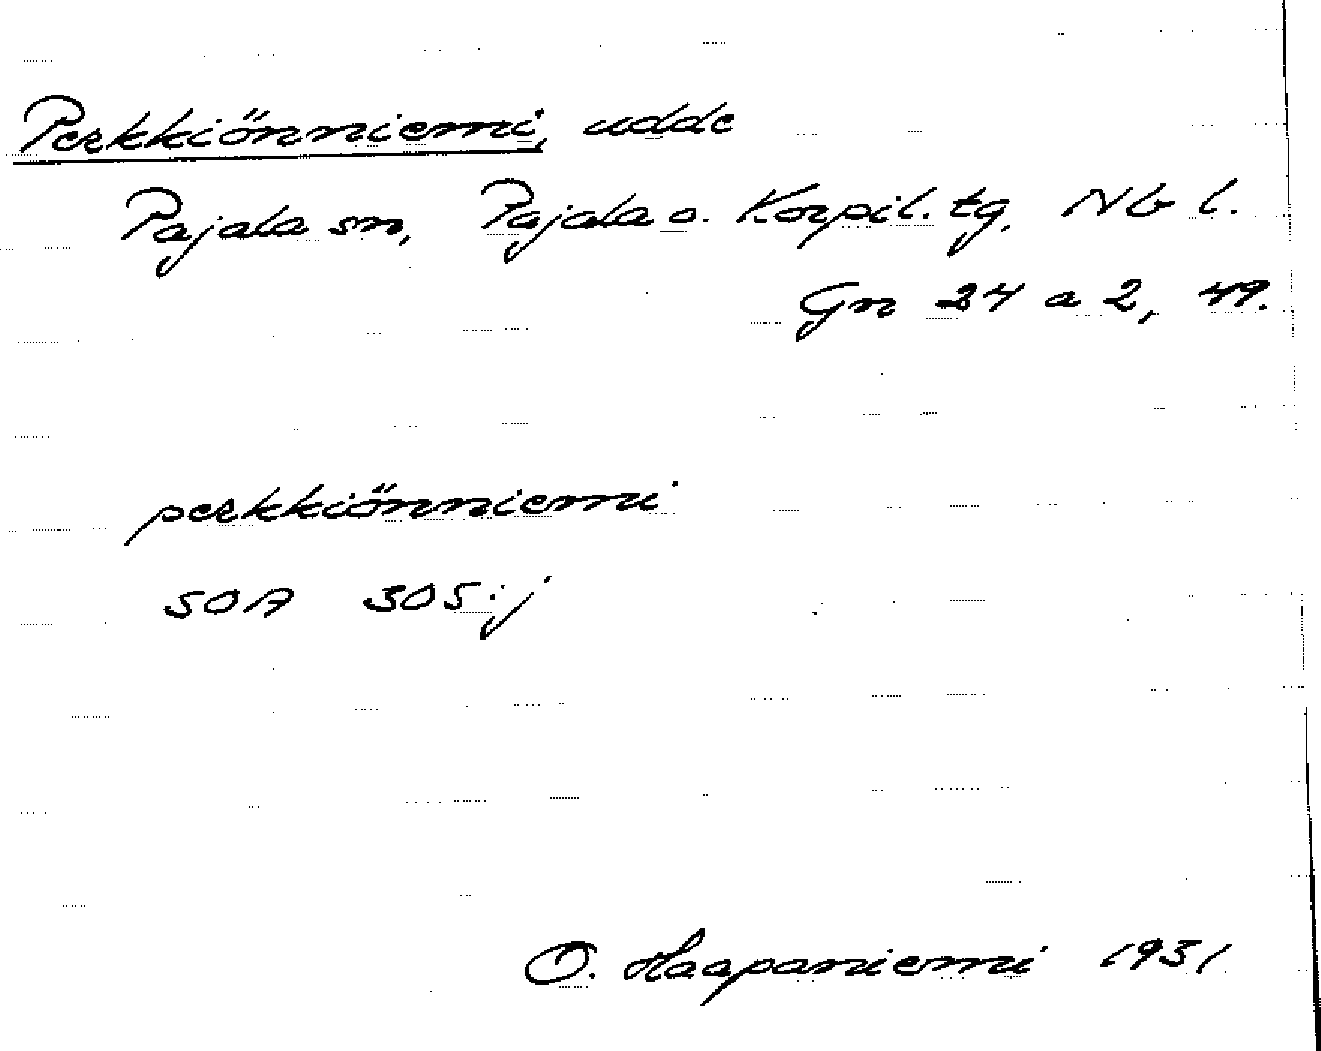 Perkkiönniemi, udde
Pajala sn, Pajala o. Korpil. tg, Nb l.
Gn 24 a 2, 49.
perkkiönniemi
SOA 305:j
O. Haapaniemi 1931